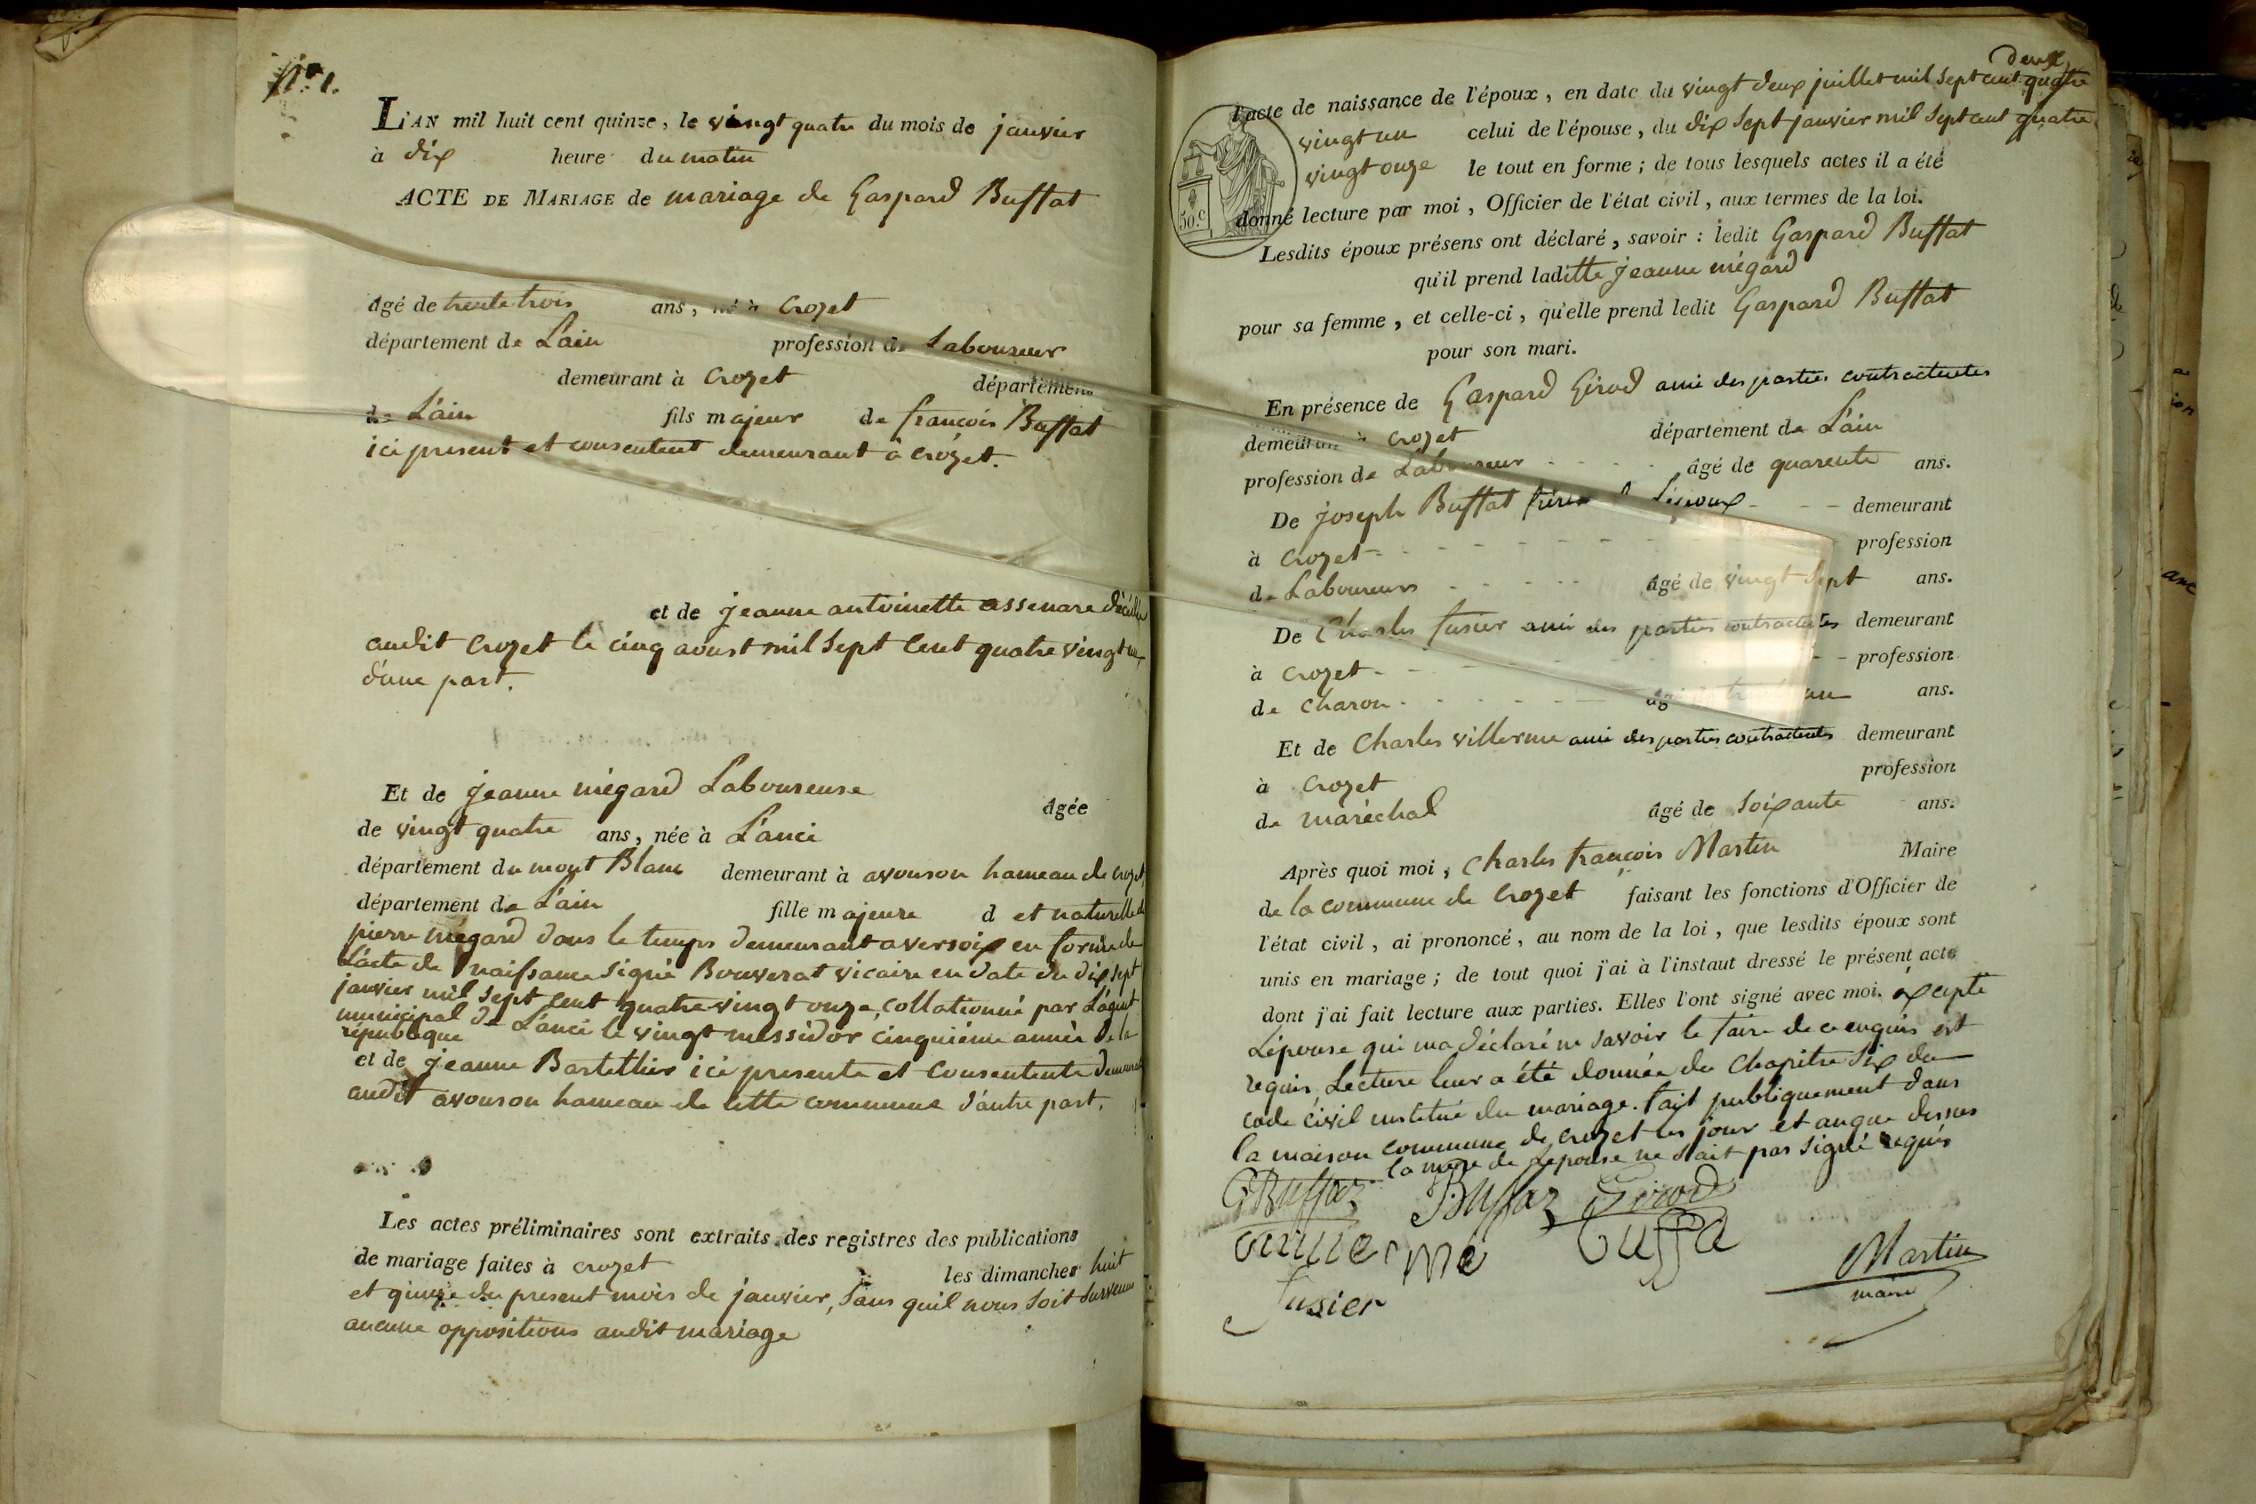 N.º 1.
L'AN mil huit cent quinze, le vingt quatre du mois de janvier
à dix heure du matin
ACTE DE MARIAGE de mariage de Gaspard Buffat
âgé de trente trois ans, né à Crozet
département de L'ain profession de Laboureur
demeurant à Crozet département
de L'ain fils majeur de françois Buffat
ici present et consentent demeurant à Crozet.
et de jeanne antoinette assenare décédée
audit Crozet le cinq aoust mil sept cent quatre vingt
d'une part.
Et de jeanne mégard Laboureuse âgée
de vingt quatre ans, née à L'anci
département du mont Blanc demeurant à avouson hameau de Crozet,
département de L'ain fille majeure d et naturelle de
pierre mégard dans le temps demeurant a versoix en forme de
L'acte de naissance signé Bouverat vicaire en date du dix sept
janvier mil sept cent quatre vingt onze, collationné par L'agent
municipal de L'anci le vingt messidor cinquième année de la
république
et de jeanne Bartethier ici presente et consentente demeurant
audit avouson hameau de cette commune d'autre part.
Les actes préliminaires sont extraits des registres des publications
de mariage faites à crozet les dimanches huit
et quinze du present mois de janvier, sans quil nous soit survenu
aucune oppositions audit mariage
deux
l'acte de naissance de l'époux, en date du vingt deux juillet mil sept cent quatre
vingt un celui de l'épouse, du dix sept janvier mil sept cent quatre
vingt onze le tout en forme; de tous lesquels actes il a été
50.c
donné lecture par moi, Officier de l'état civil, aux termes de la loi.
Lesdits époux présens ont déclaré, savoir: ledit Gaspard Buffat
qu'il prend laditte jeanne mégard
pour sa femme, et celle-ci, qu'elle prend ledit Gaspard Buffat
pour son mari.
En présence de Gaspard Girod ami des parties contractentes
demeurant à crozet département de L'ain
profession de Laboureur âgé de quarente ans.
De joseph Buffat frère de L'époux demeurant
à Crozet profession
de Laboureurs âgé de vingt sept ans.
De Charles fusier ami des parties contractentes demeurant
à Crozet profession
de charon ans.
Et de Charles villerme ami des parties contractentes demeurant
à Crozet profession
de maréchal âgé de soixante ans.
Après quoi moi, Charles françois Martin Maire
de la commune de Crozet faisant les fonctions d'Officier de
l'état civil, ai prononcé, au nom de la loi, que lesdits époux sont
unis en mariage; de tout quoi j'ai à l'instant dressé le présent acte
dont j'ai fait lecture aux parties. Elles l'ont signé avec moi. excepte
L'épouse qui ma déclaré ne savoir le faire de ce enquis est
requis, Lecture leur a été donnée du Chapitre six du
code civil institué du mariage. fait publiquement dans
la maison commune de crozet les jour et an que dessus
la mère de Lepouse ne sait pas signé requis
G Buffaz Buffaz Girod
villerme Buffa
fusier
Martin
maire